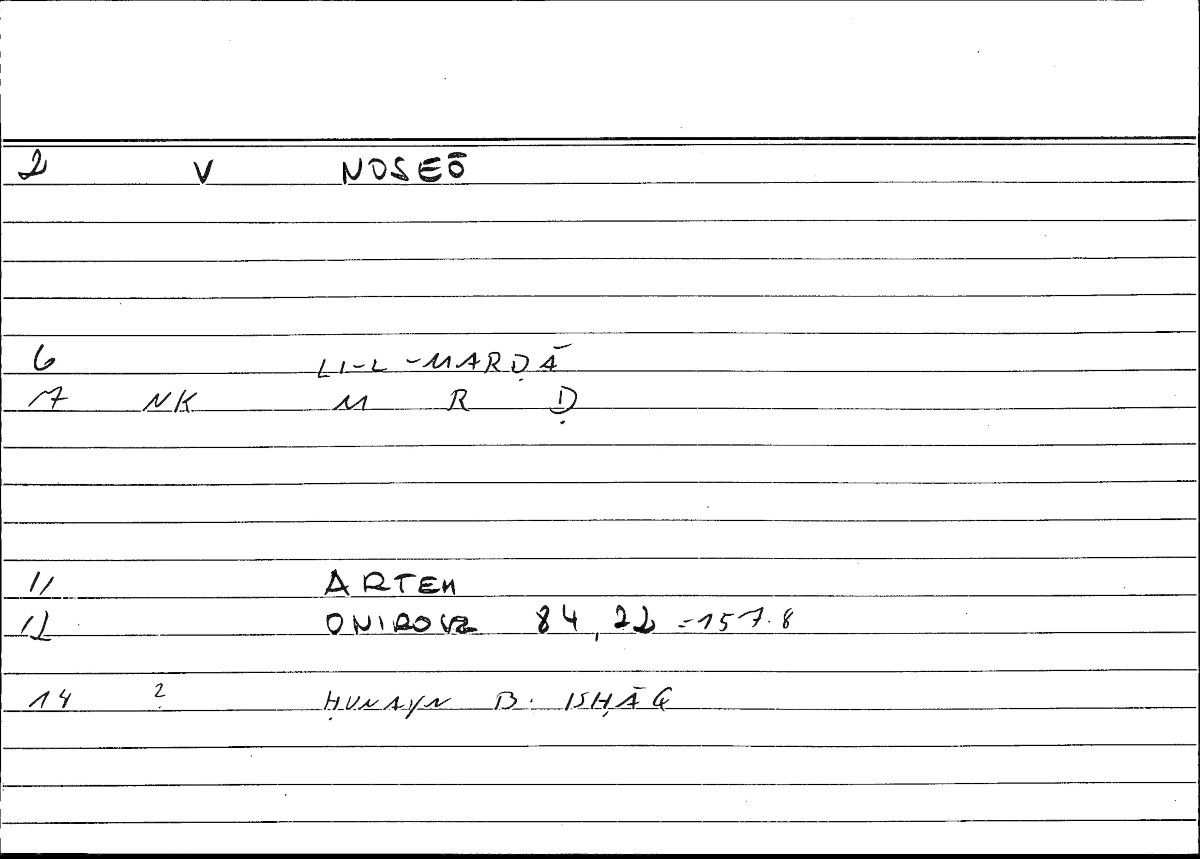 2 V NOSEŌ
6 LI-L-MARḌĀ
17 NK M R Ḍ
11 ARTEM
12 ONIROCR 84,22 =157.8
14 ? ḤUNAYN B. ISḤĀQ